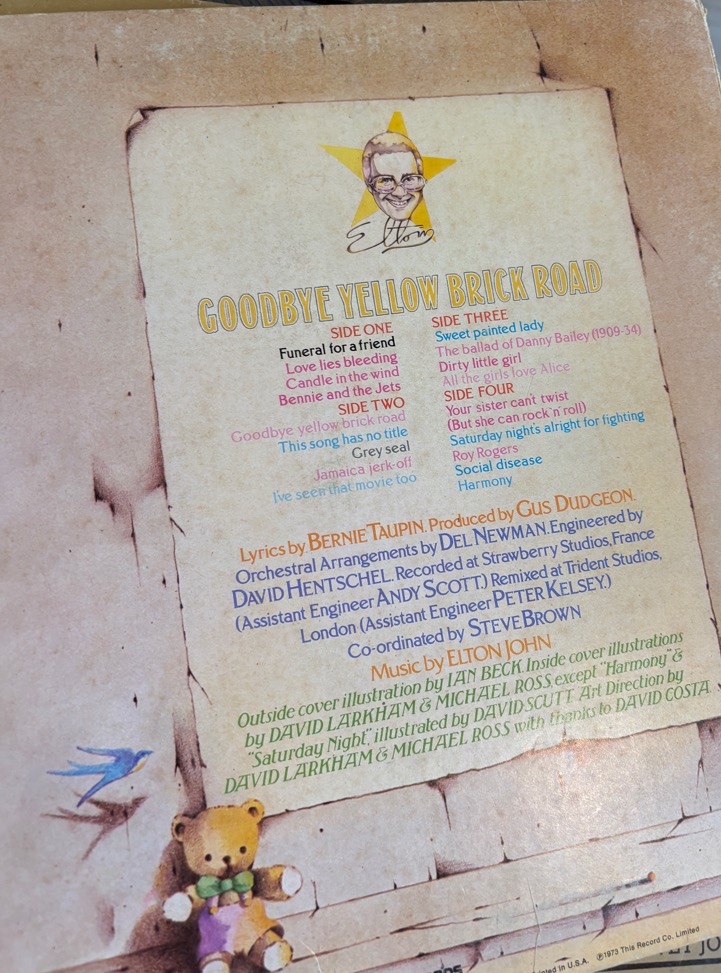 Elton
GOODBYE YELLOW BRICK ROAD
SIDE ONE
Funeral for a friend
Love lies bleeding
Candle in the wind
Bennie and the Jets
SIDE TWO
Goodbye yellow brick road
This song has no title
Grey seal
Jamaica jerk-off
I've seen that movie too
SIDE THREE
Sweet painted lady
The ballad of Danny Bailey (1909-34)
Dirty little girl
All the girls love Alice
SIDE FOUR
Your sister can't twist
(But she can rock 'n roll)
Saturday night's alright for fighting
Roy Rogers
Social disease
Harmony
Lyrics by BERNIE TAUPIN. Produced by GUS DUDGEON.
Orchestral Arrangements by DEL NEWMAN. Engineered by
DAVID HENTSCHEL. Recorded at Strawberry Studios, France
(Assistant Engineer ANDY SCOTT.) Remixed at Trident Studios,
London (Assistant Engineer PETER KELSEY.)
Co-ordinated by STEVE BROWN
Music by ELTON JOHN
Outside cover illustration by IAN BECK. Inside cover illustrations
by DAVID LARKHAM & MICHAEL ROSS except "Harmony" &
"Saturday Night", illustrated by DAVID SCUTT. Art Direction by
DAVID LARKHAM & MICHAEL ROSS with thanks to DAVID COSTA.
in U.S.A. ℗1973 This Record Co. Limited